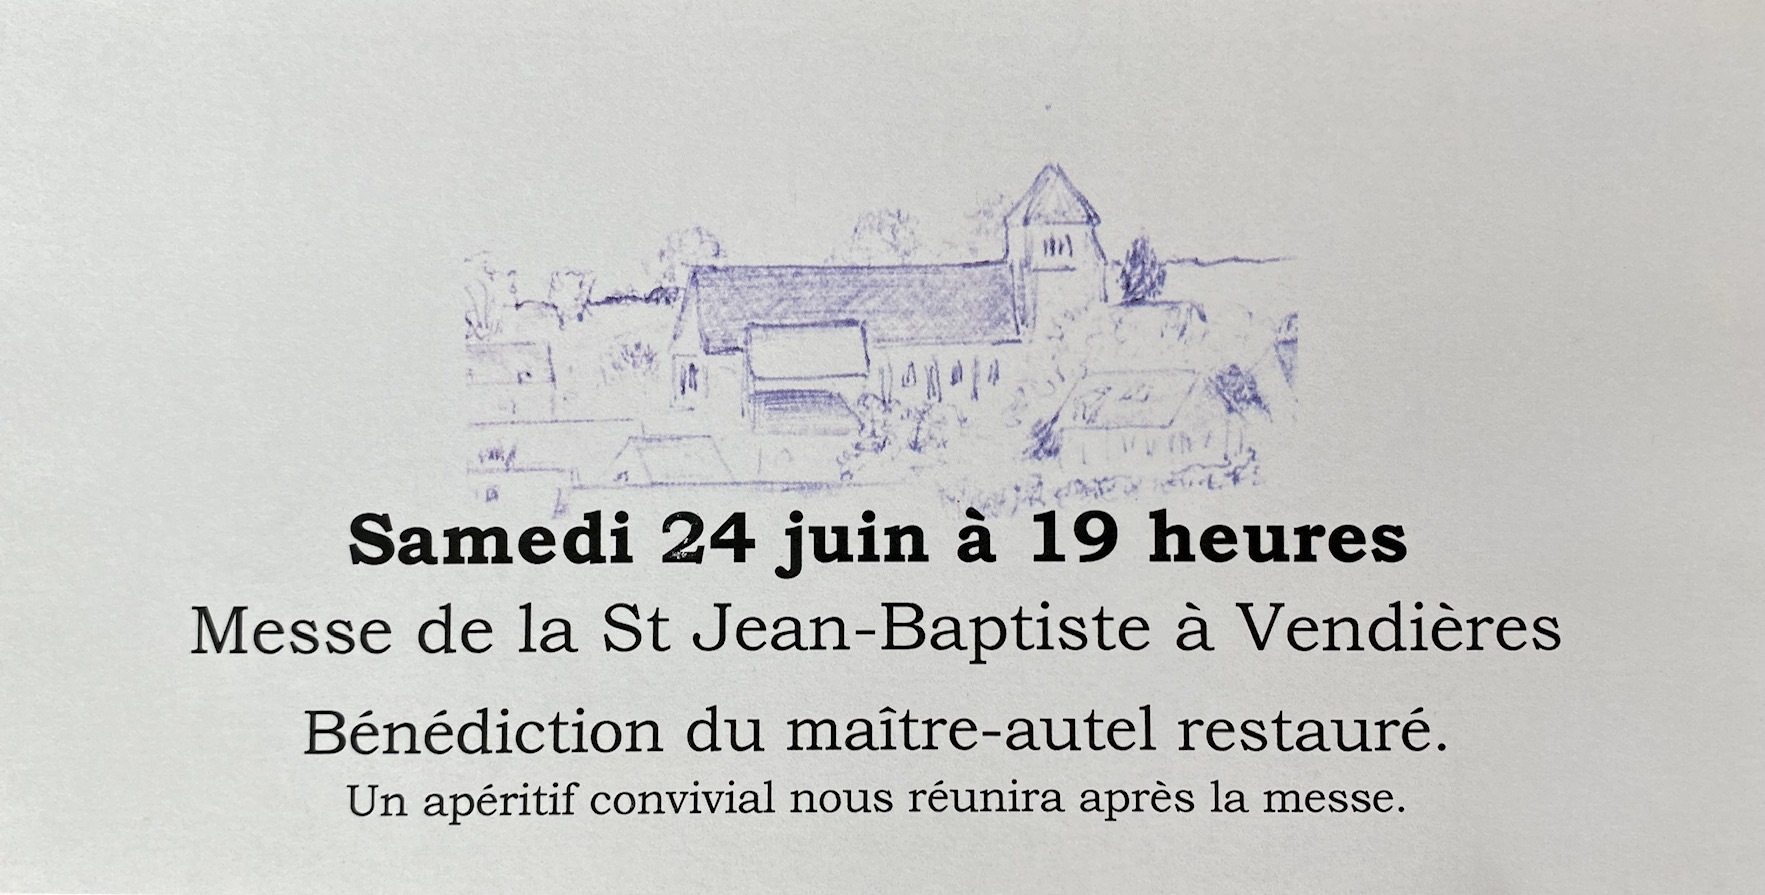 Samedi 24 juin à 19 heures
Messe de la St Jean-Baptiste à Vendières
Bénédiction du maître-autel restauré.
Un apéritif convivial nous réunira après la messe.